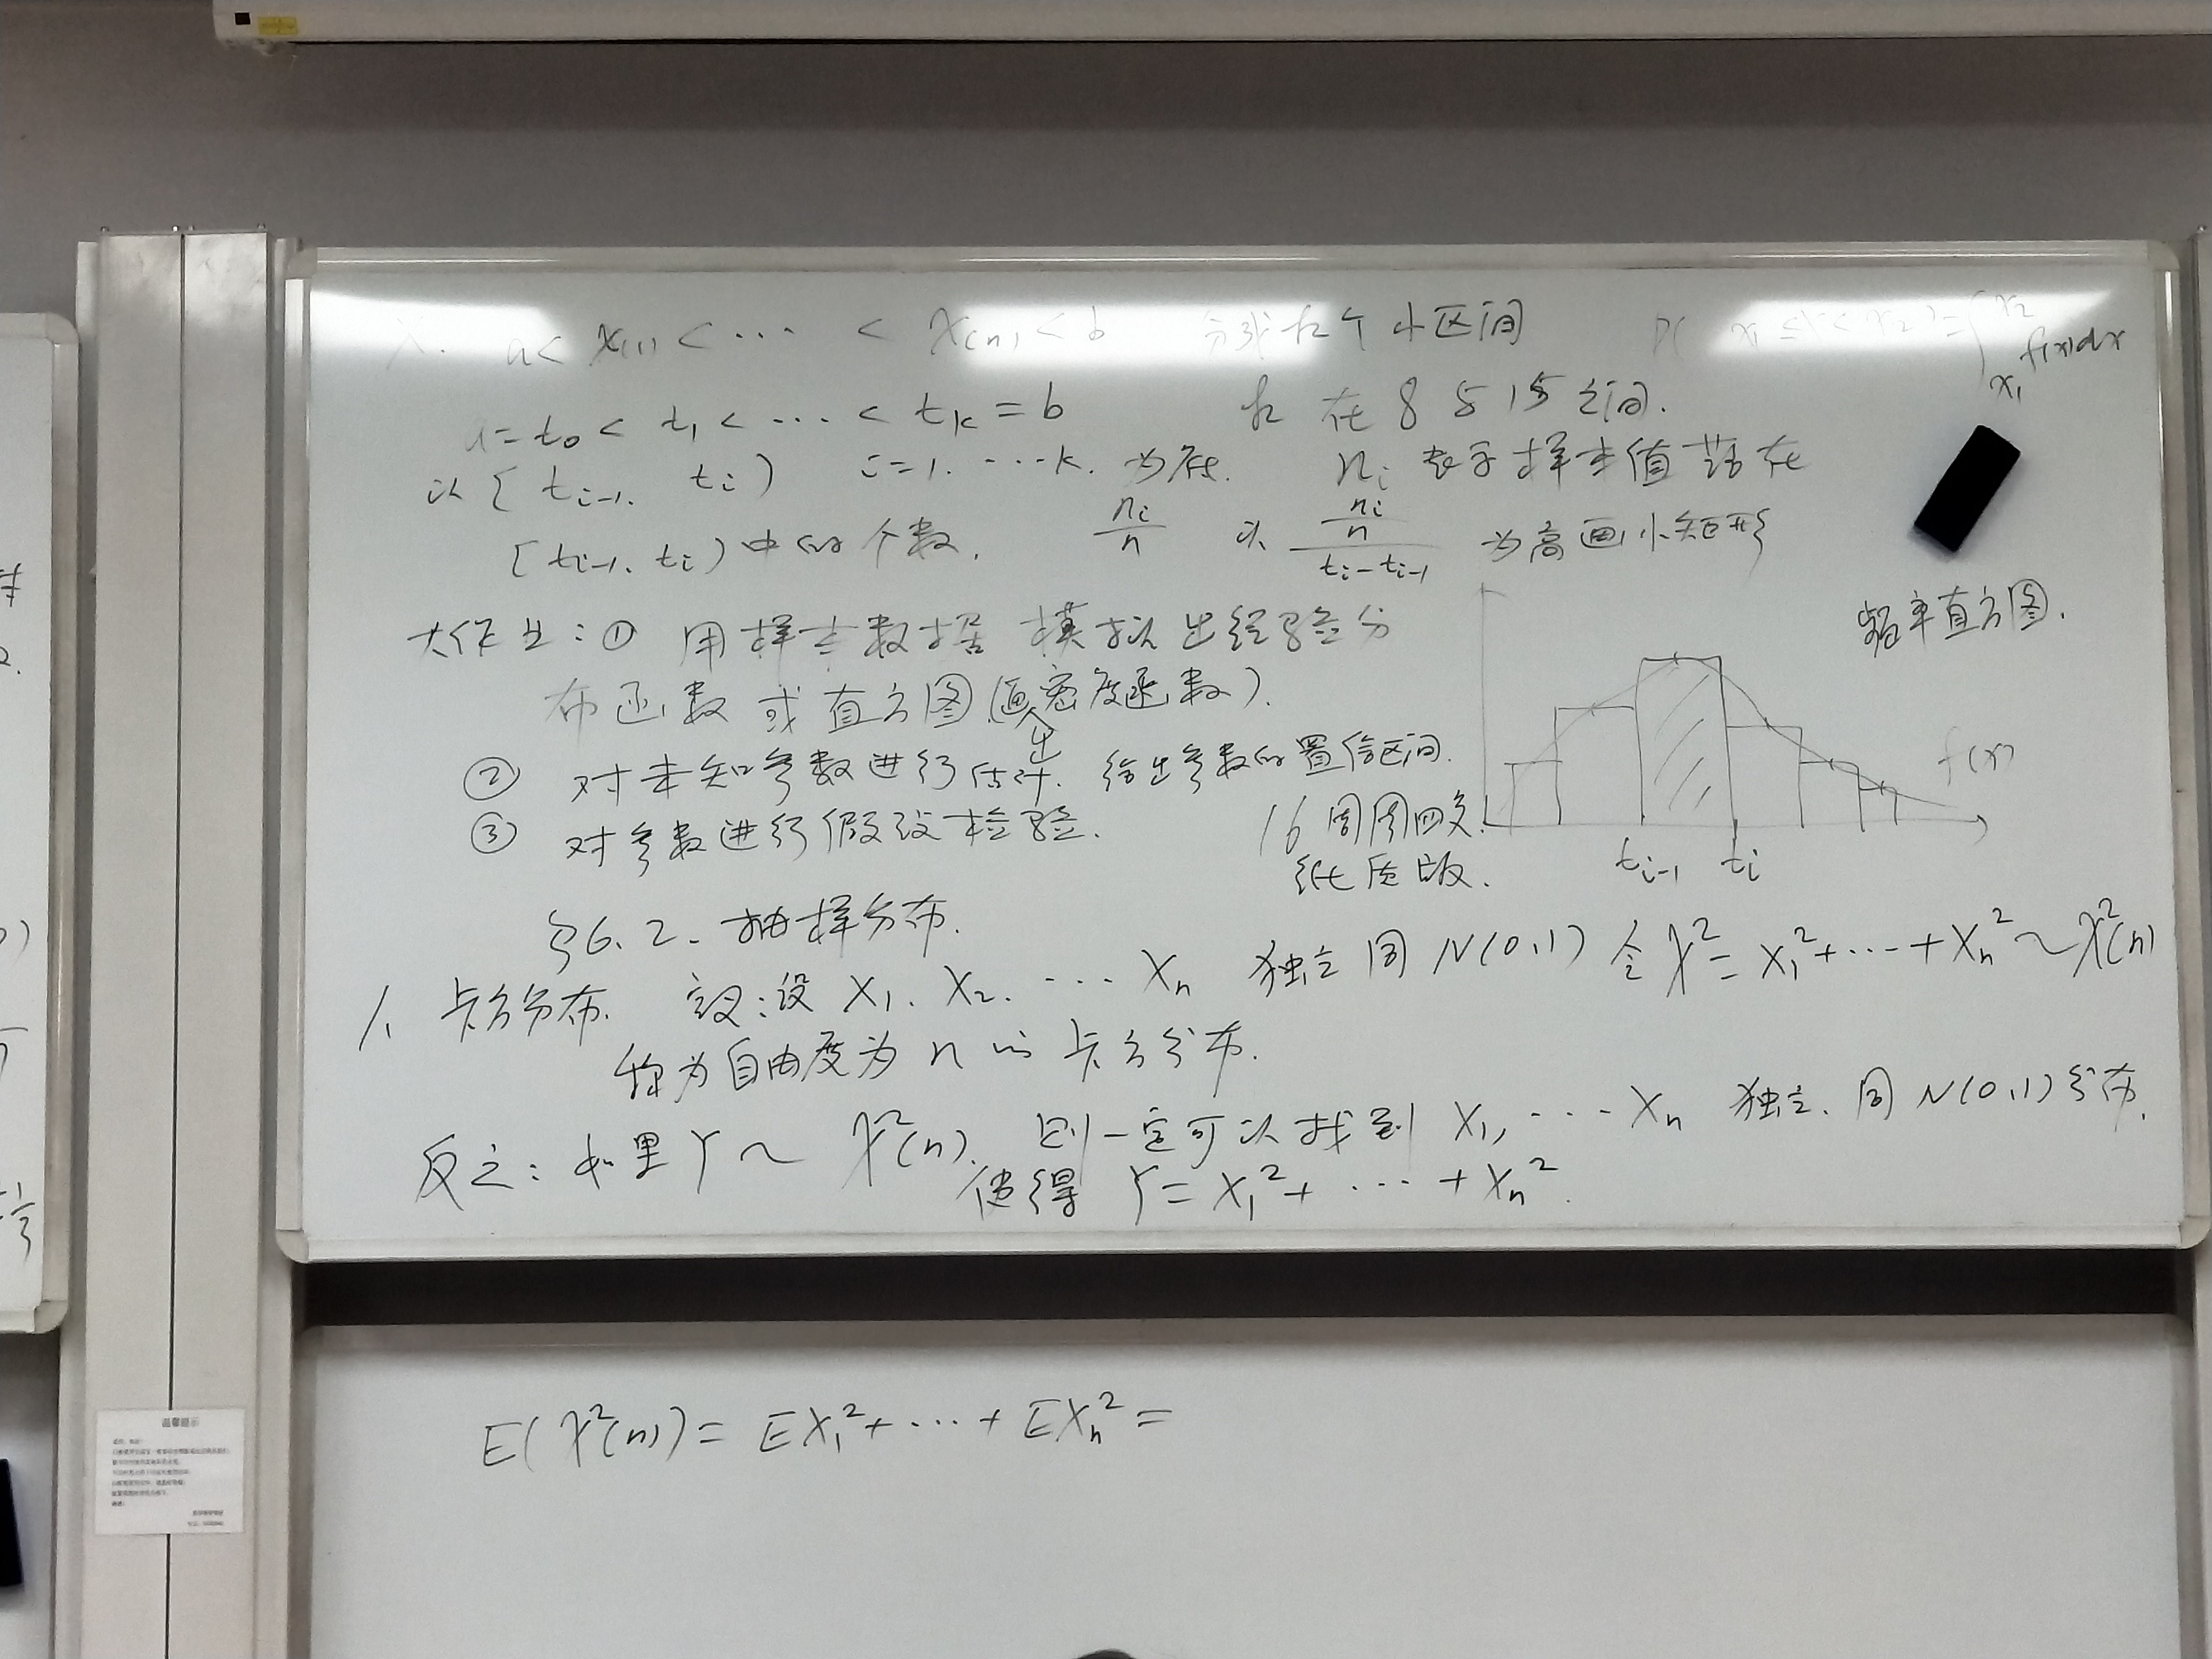 X. a < X(1) < ··· < X(n) < b 分成k个小区间 P( x₁ ≤ X < x₂ ) = ∫_{x₁}^{x₂} f(x)dx
a = t₀ < t₁ < ··· < t_k = b k 在 8 与 15 之间.
以 [ t_{i-1}. t_i ) i = 1. ···k. 为底. n_i 表示样本值落在
[ t_{i-1}. t_i ) 中的个数. n_i/n 以 (n_i/n)/(t_i - t_{i-1}) 为高画小矩形
频率直方图.
大作业: ① 用样本数据 模拟出经验分
布函数 或 直方图 (画出密度函数).
② 对未知参数进行估计. 给出参数的置信区间.
③ 对参数进行假设检验.
16周周四交.
纸质版.
f(x)
t_{i-1} t_i
§6.2. 抽样分布.
1. 卡方分布. 定义: 设 X₁. X₂. ··· X_n 独立 同 N(0,1) 令 χ² = X₁² + ··· + X_n² ~ χ²(n)
称为自由度为 n 的 卡方分布.
反之: 如果 Y ~ χ²(n). 则一定可以找到 X₁, ··· X_n 独立. 同 N(0,1) 分布.
使得 Y = X₁² + ··· + X_n².
E( χ²(n) ) = EX₁² + ··· + EX_n² =
温馨提示